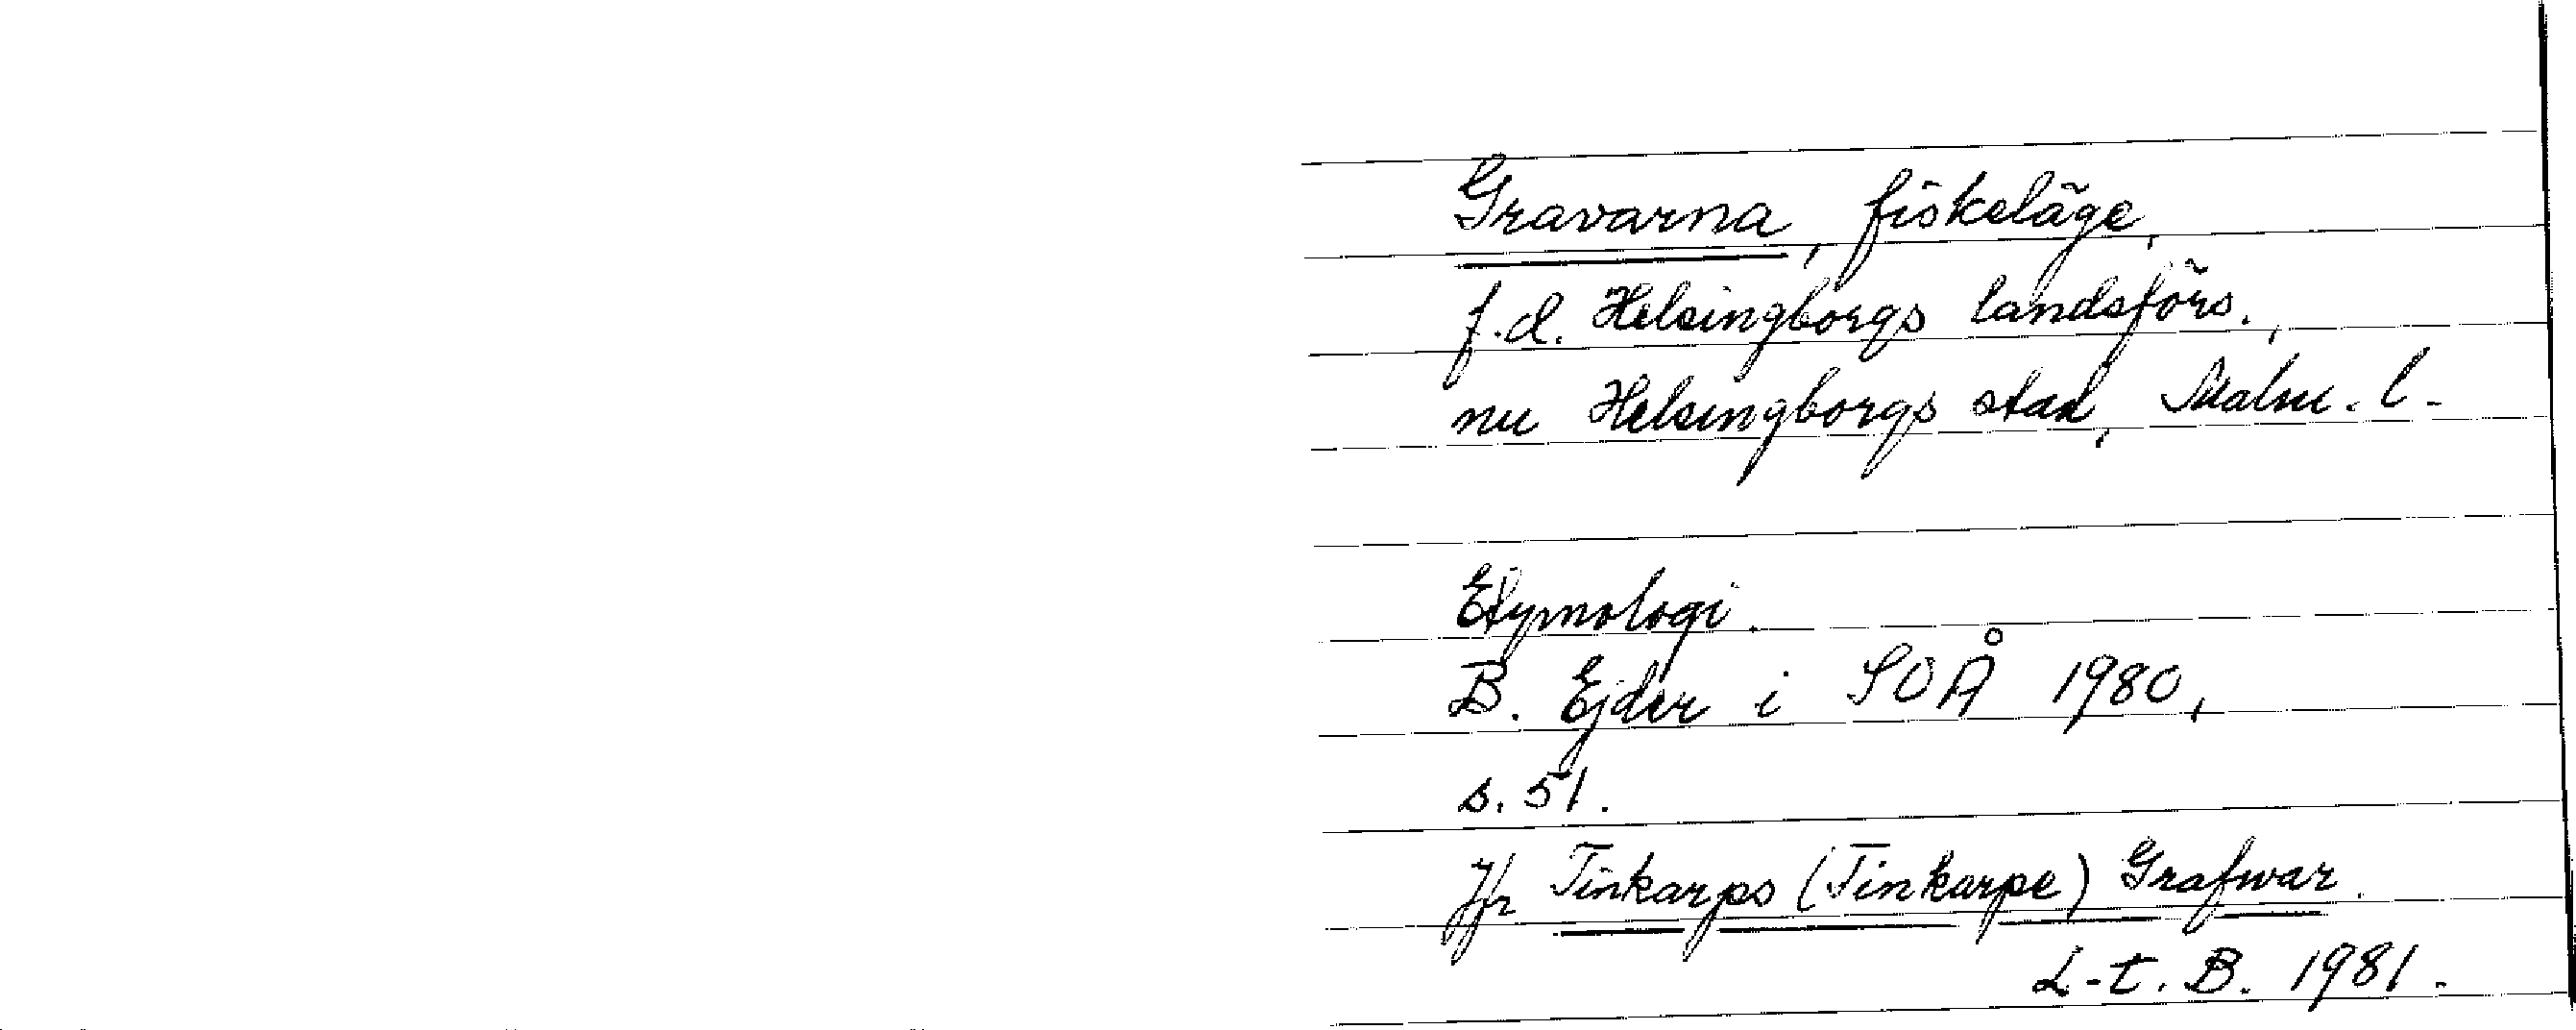 Gravarna, fiskeläge,
f.d. Helsingborgs landsförs.,
nu Helsingborgs stad, Malm. l.
Etymologi.
B. Ejder i SOÅ 1980,
s. 51.
Jfr Tinkarps (Tinkarpe) Grafwar.
L-t. B. 1981.